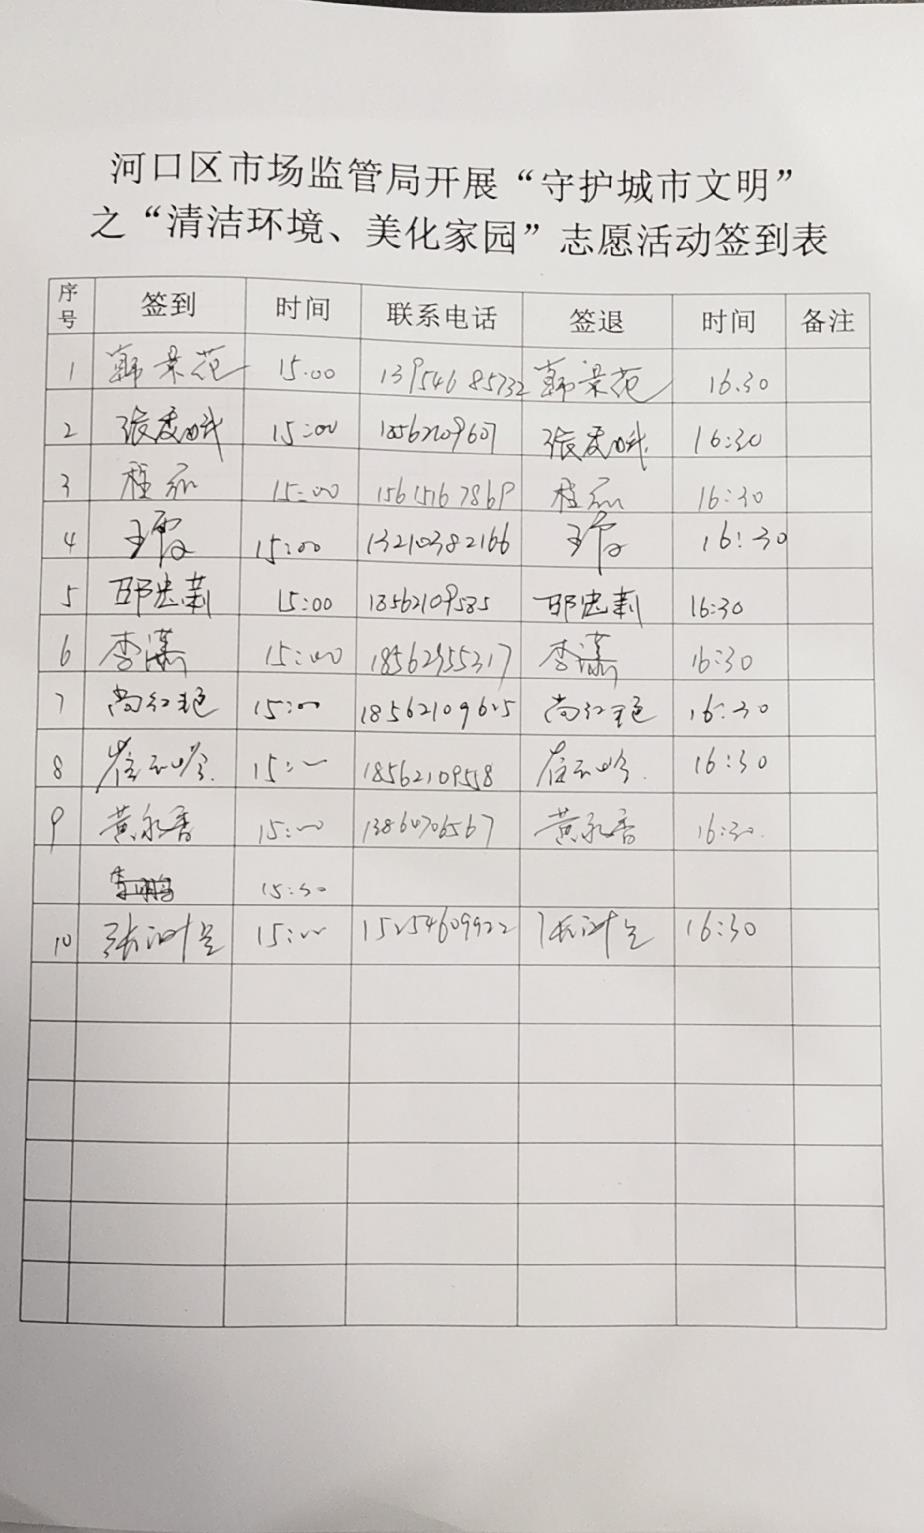 河口区市场监管局开展“守护城市文明”
之“清洁环境、美化家园”志愿活动签到表
序号 签到 时间 联系电话 签退 时间 备注
1 韩景苑 15:00 13954685732 韩景苑 16:30
2 15:00 18562109607 16:30
3 程永 15:00 15615167869 程永 16:30
4 王霞 15:00 13210382166 王霞 16:30
5 邵忠莉 15:00 18562109585 邵忠莉 16:30
6 李潇 15:00 18562955317 李潇 16:30
7 尚红艳 15:00 18562109605 尚红艳 16:30
8 15:00 18562109558 16:30
9 黄永香 15:00 13860706567 黄永香 16:30
15:30
10 15:00 15254609922 16:30